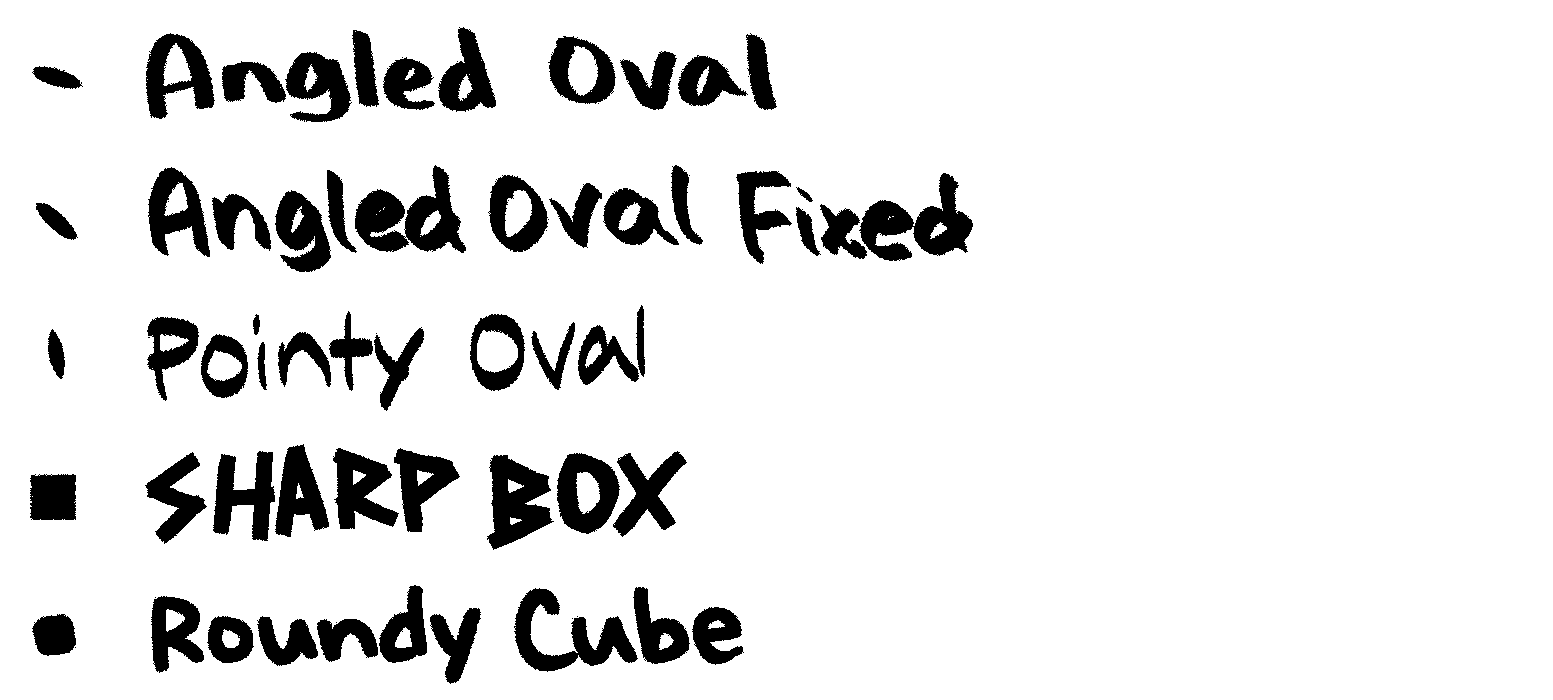 Angled Oval
Angled Oval Fixed
Pointy Oval
SHARP BOX
Roundy Cube